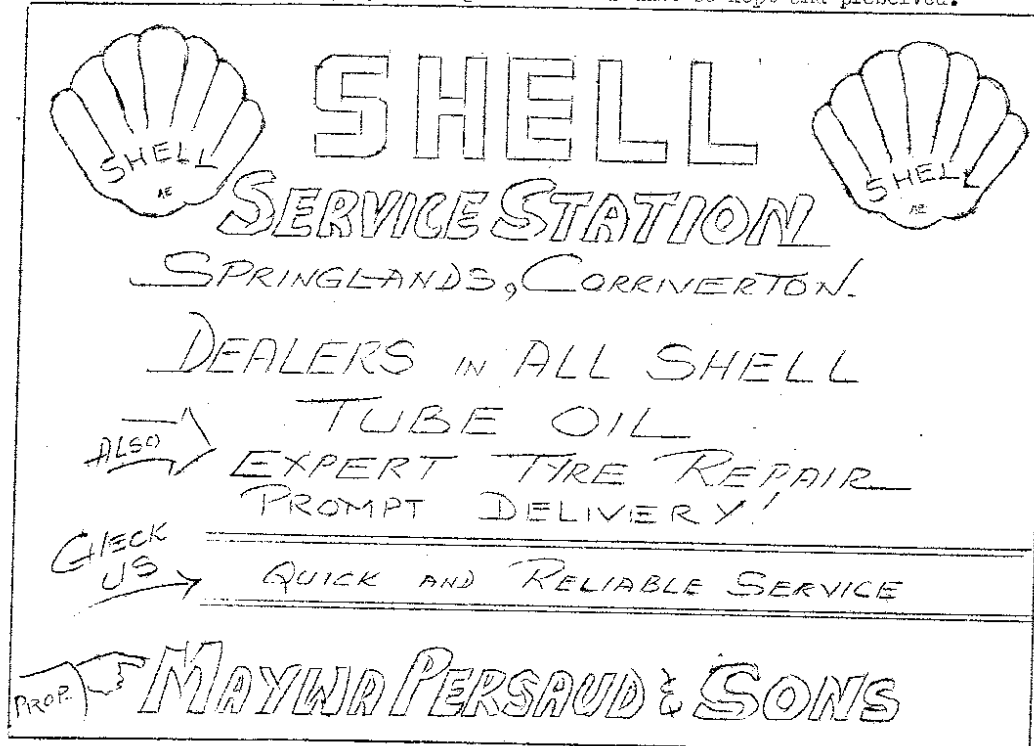 kept and preserved.
SHELL
SHELL
SHELL
AE
AE
SERVICE STATION
SPRINGLANDS, CORRIVERTON.
DEALERS IN ALL SHELL
TUBE OIL
ALSO
EXPERT TYRE REPAIR
PROMPT DELIVERY!
CHECK
US
QUICK AND RELIABLE SERVICE
PROP.
MAYWA PERSAUD & SONS